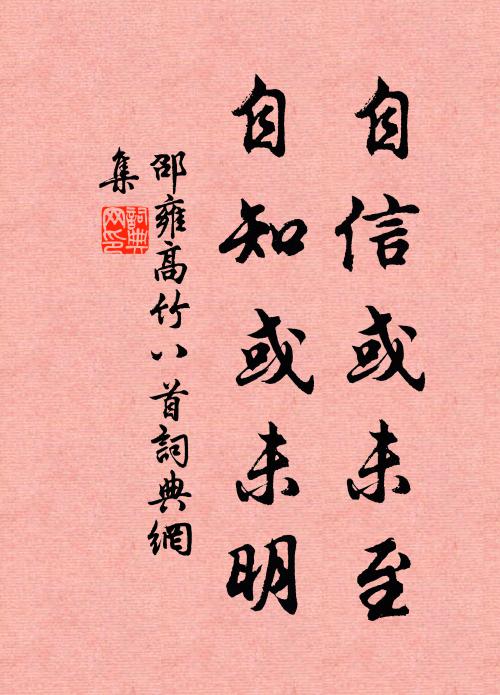 自信或未至
自知或未明
邵雍高竹八首詞典網
集
詞典
网印